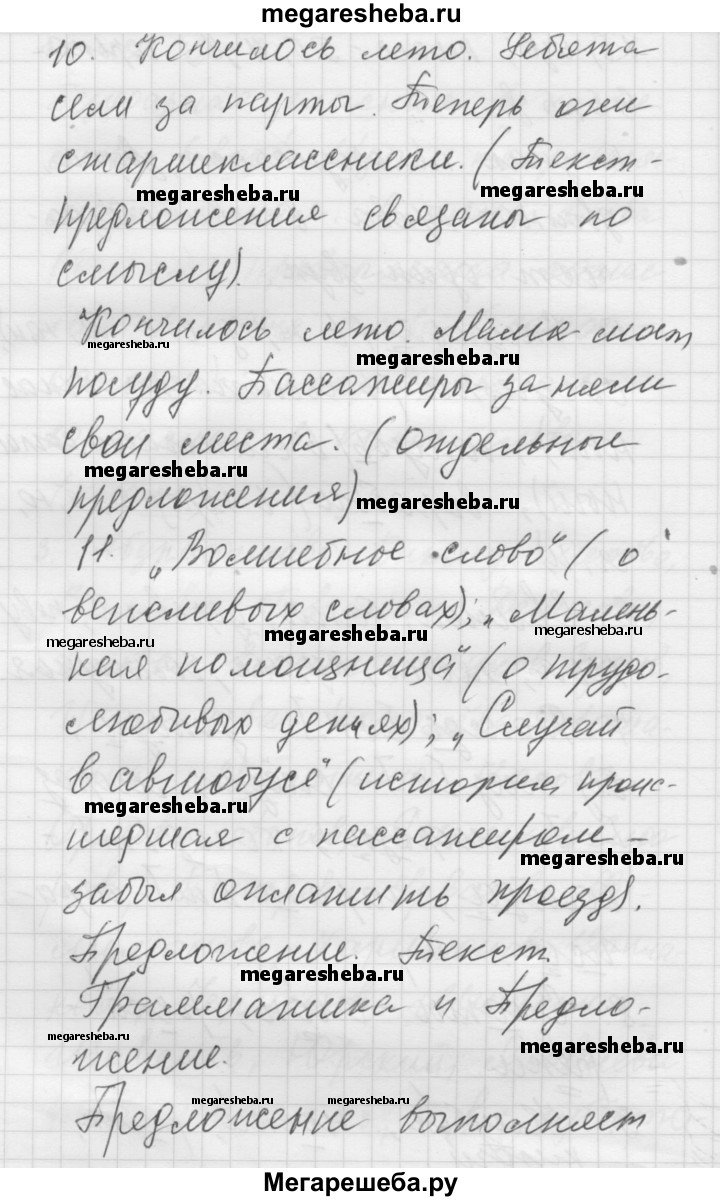 megaresheba.ru
10. Кончилось лето. Ребята
сели за парты. Теперь они
старшеклассники. (Текст -
megaresheba.ru megaresheba.ru
предложения связаны по
смыслу).
Кончилось лето. Мама моет
megaresheba.ru megaresheba.ru
посуду. Пассажиры заняли
свои места. (Отдельные
megaresheba.ru
предложения) megaresheba.ru
11. „Волшебное слово" (о
вежливых словах); „Малень-
megaresheba.ru megaresheba.ru megaresheba.ru
кая помощница" (о трудо-
любивых денях); „Случай
в автобусе" (история, проис-
megaresheba.ru megaresheba.ru
шедшая с пассажиром -
megaresheba.ru
забыл оплатить проезд).
Предложение. Текст.
megaresheba.ru
Грамматика и Предло-
megaresheba.ru megaresheba.ru
жение.
megaresheba.ru megaresheba.ru
Предложение выполняет
Мегарешеба.ру